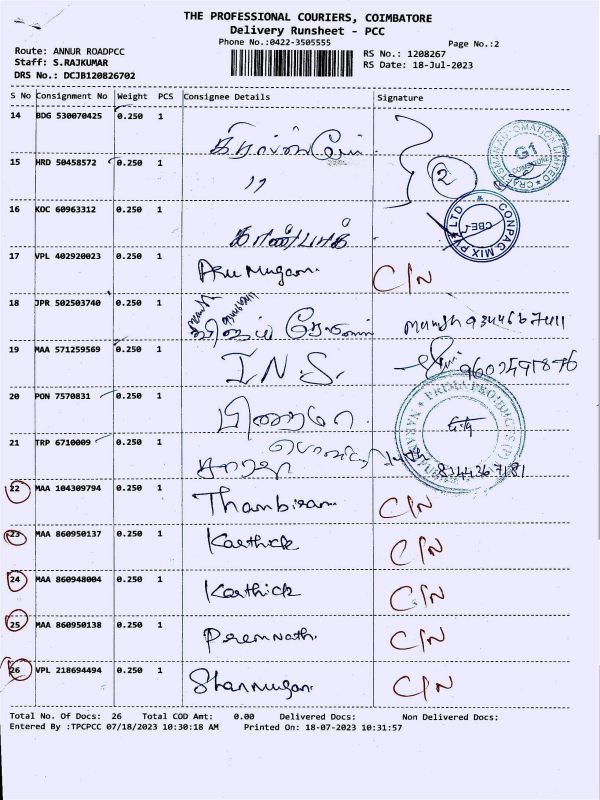 THE PROFESSIONAL COURIERS, COIMBATORE
Delivery Runsheet - PCC
Phone No.:0422-3505555
Page No.:2
Route: ANNUR ROADPCC
RS No.: 1208267
Staff: S.RAJKUMAR
RS Date: 18-Jul-2023
DRS No.: DCJB120826702
S No Consignment No Weight PCS Consignee Details Signature
14 BDG 530070425 0.250 1
G1
COIMBATORE
15 HRD 50458572 0.250 1 ,,
2
16 KOC 60963312 0.250 1
CONPAC MIX PVT LTD
CBE-
17 VPL 402920023 0.250 1 Aru Mugam C/N
18 JPR 502503740 0.250 1 Manish 9344667411
19 MAA 571259569 0.250 1 I.N.S. 9602591876
20 PON 7570831 0.250 1
PRIMA PRODUCTS (P)
21 TRP 6710009 0.250 1 8144367181
22 MAA 104309794 0.250 1 Thambiran C/N
23 MAA 860950137 0.250 1 Karthick C/N
24 MAA 860948004 0.250 1 Karthick C/N
25 MAA 860950138 0.250 1 Premnath. C/N
26 VPL 218694494 0.250 1 Shanmugam C/N
Total No. Of Docs: 26 Total COD Amt: 0.00 Delivered Docs: Non Delivered Docs:
Entered By :TPCPCC 07/18/2023 10:30:18 AM Printed On: 18-07-2023 10:31:57